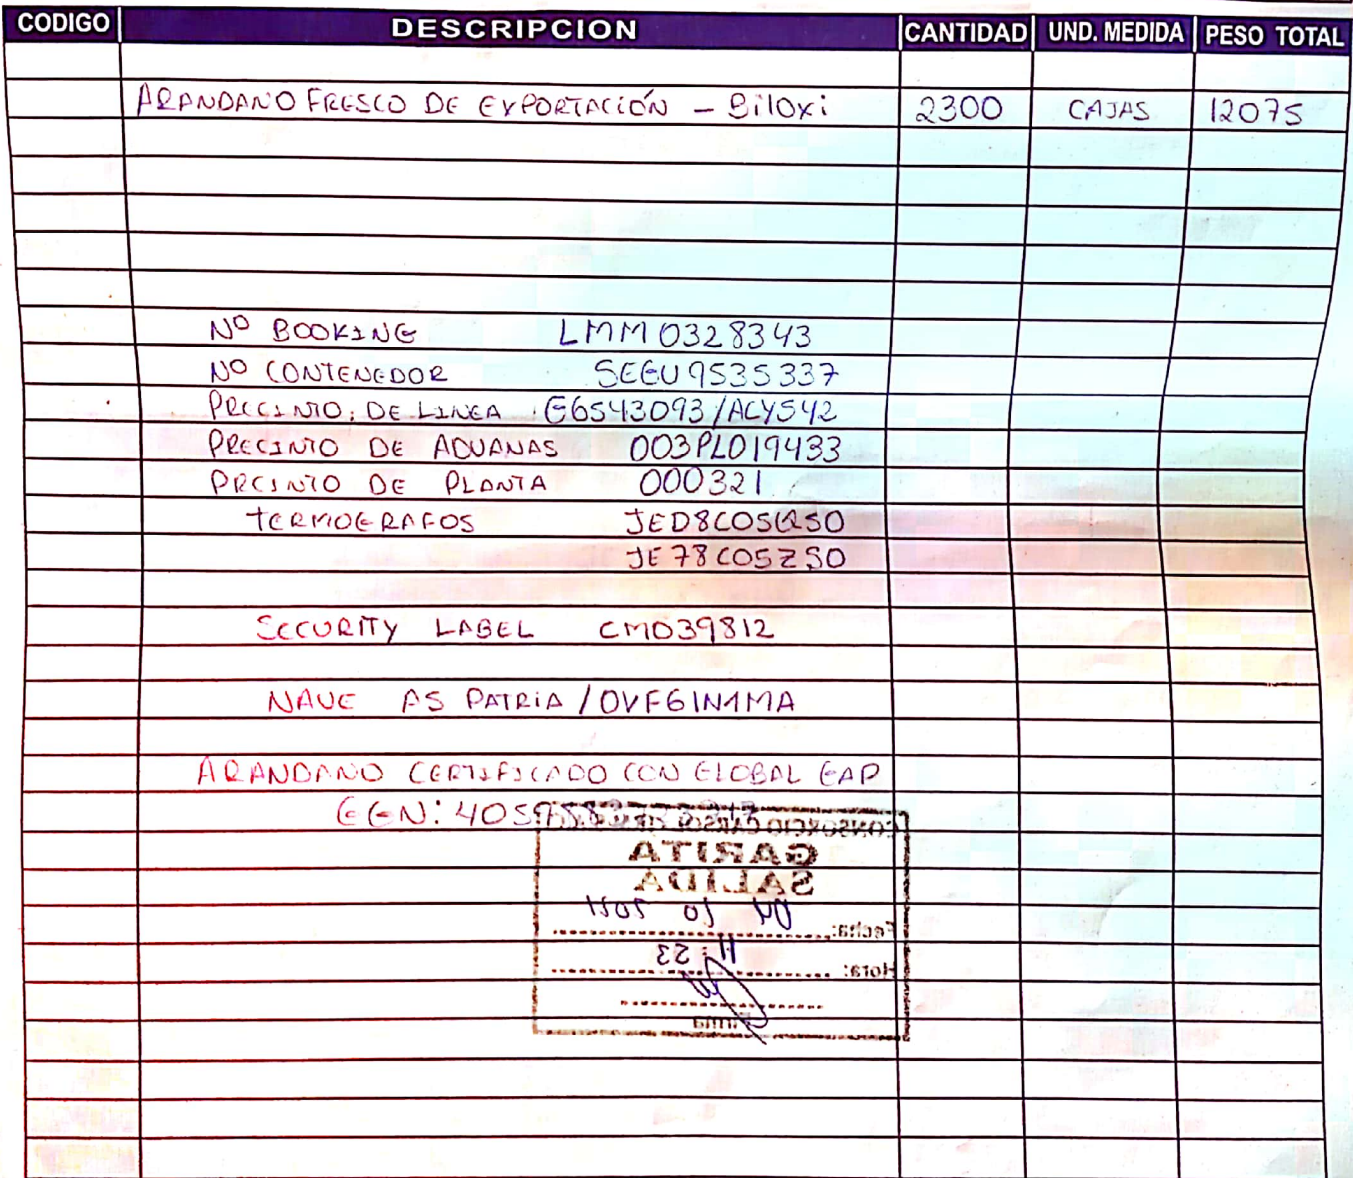 CODIGO DESCRIPCION CANTIDAD UND. MEDIDA PESO TOTAL
ARANDANO FRESCO DE EXPORTACIÓN - Biloxi 2300 CAJAS 12075
Nº BOOKING LMM0328343
Nº CONTENEDOR SEGU9535337
PRECINTO DE LINEA G6543093/ACY542
PRECINTO DE ADUANAS 003PLO19433
PRCINTO DE PLANTA 000321
TERMOGRAFOS JED8COSQSO
JE78COSZSO
SECURITY LABEL CMO39812
NAVE AS PATRIA / OVF6IN1MA
ARANDANO CERTIFICADO CON GLOBAL GAP
GGN:
CONSORCIO
GARITA
SALIDA
Fecha:
Hora: 11:23
Firma